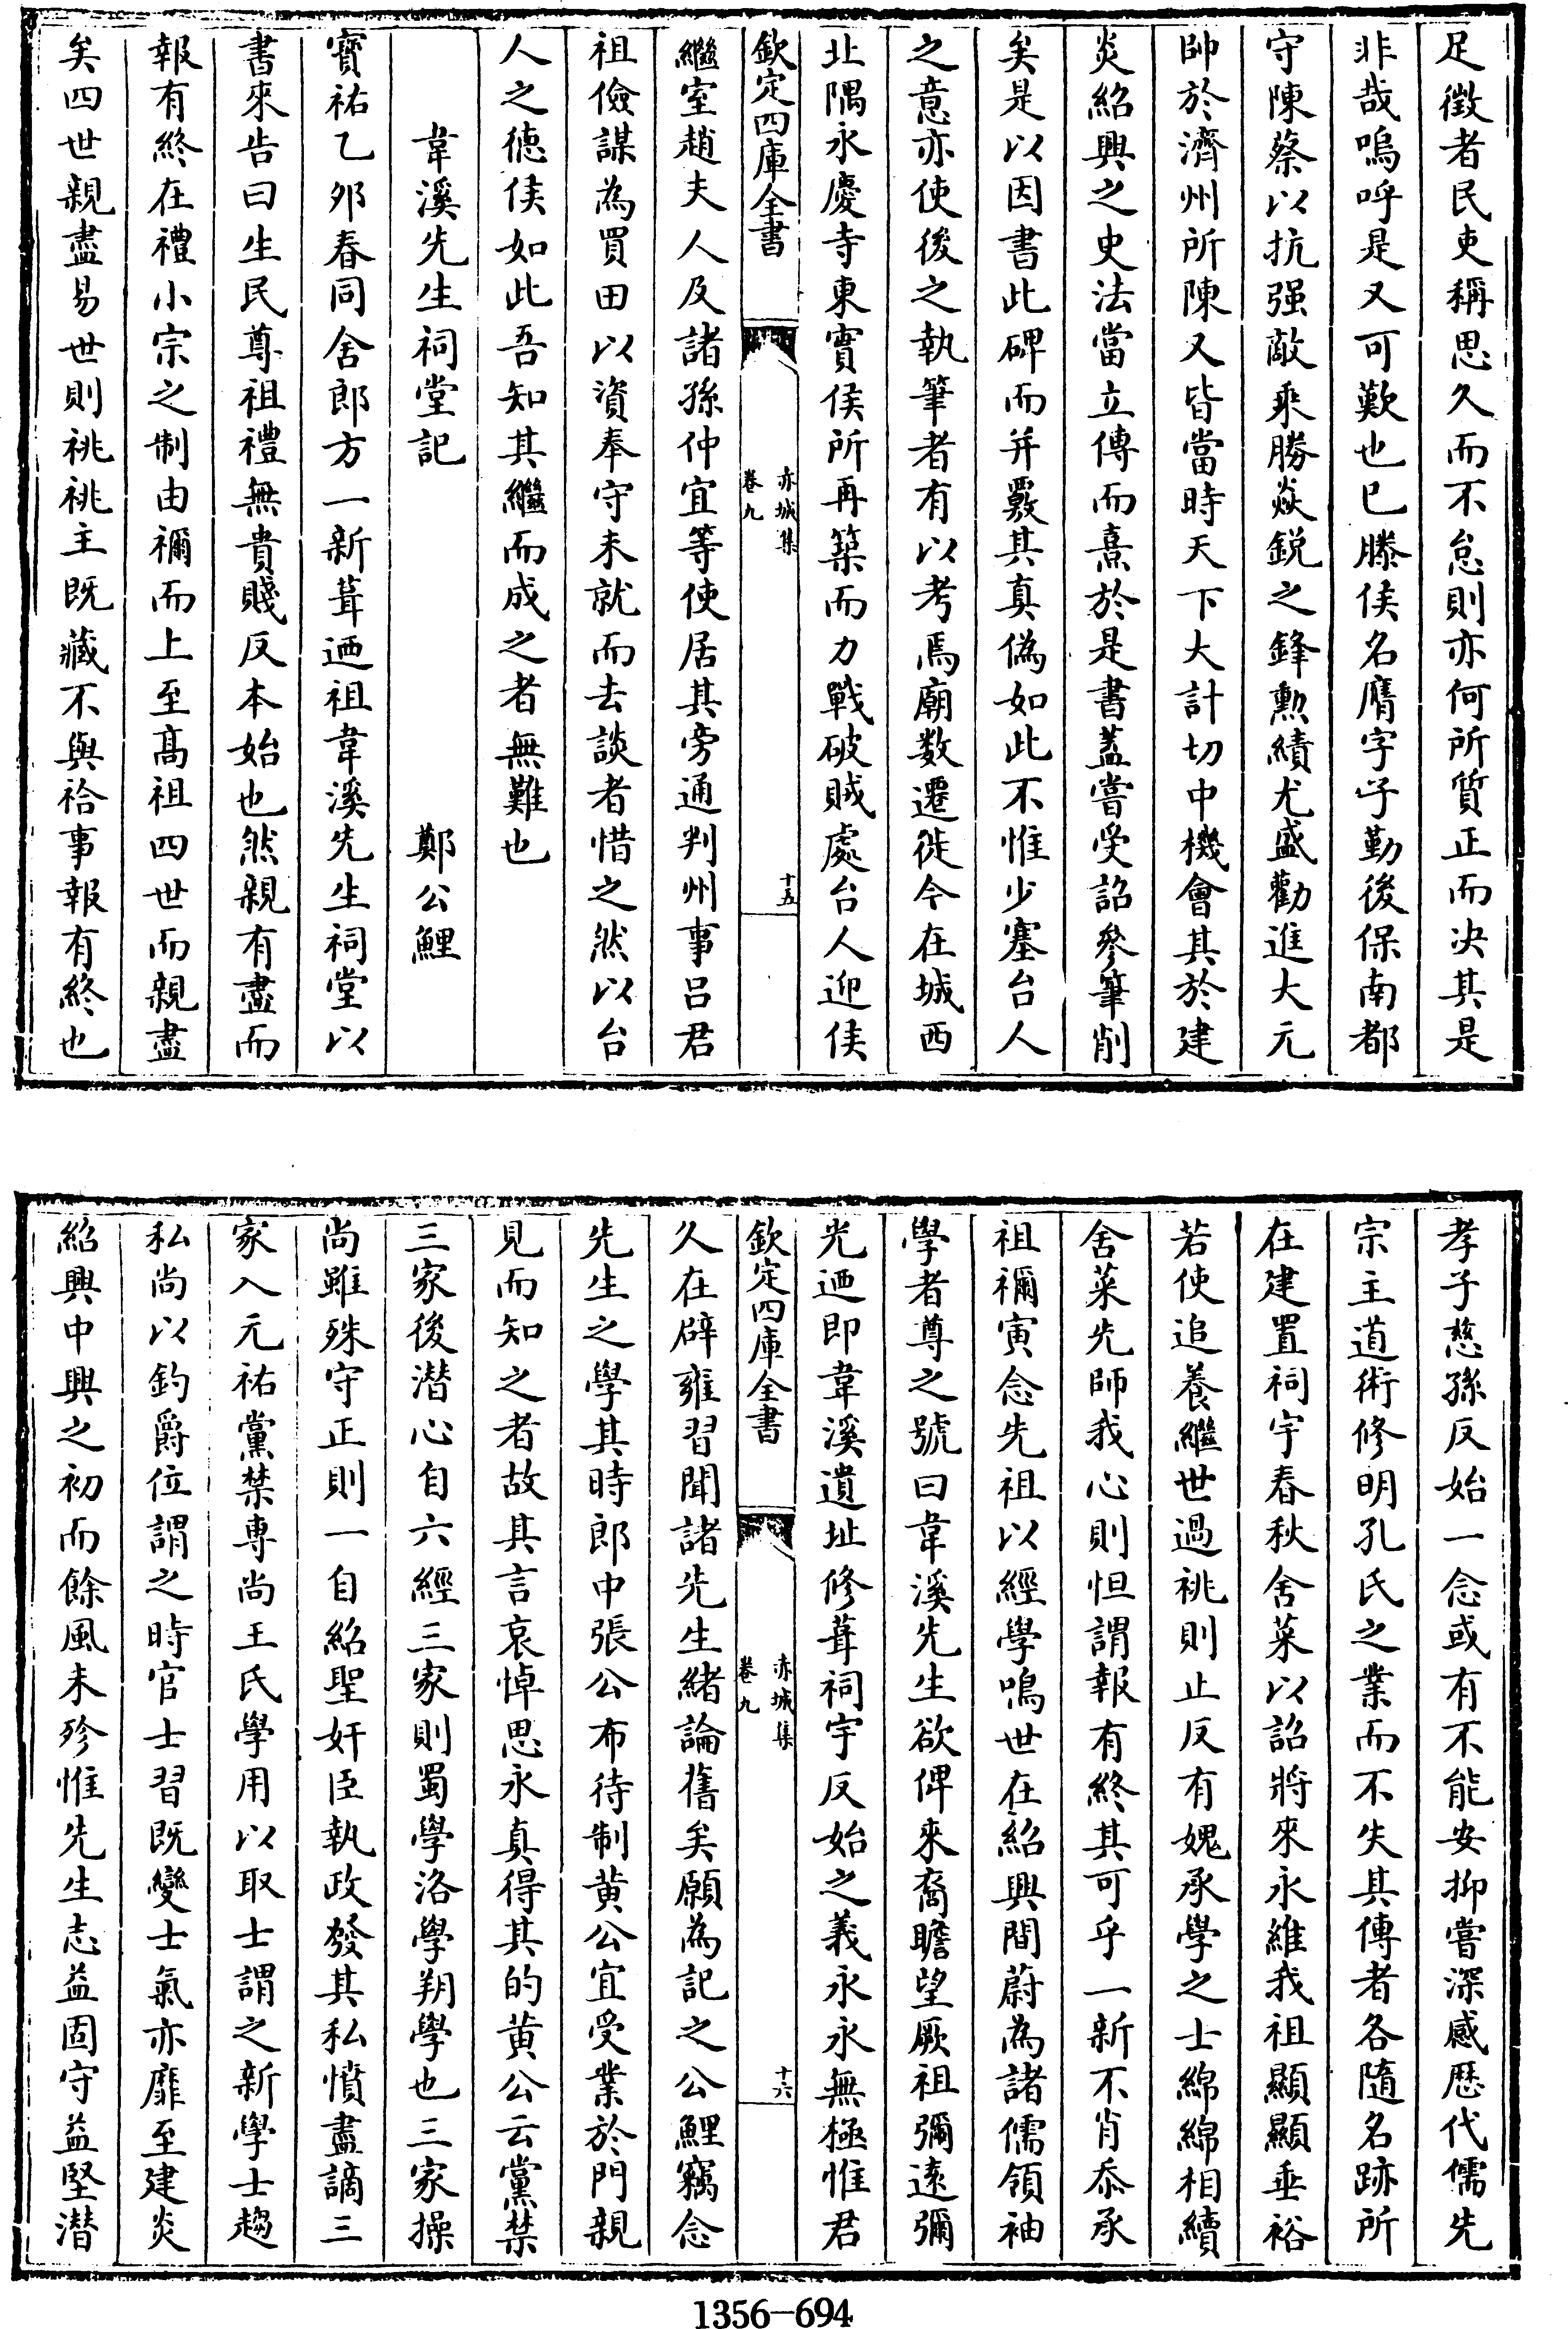 足徵者民吏稱思久而不怠則亦何所質正而决其是
非哉嗚呼是又可歎也已滕侯名膺字子勤後保南都
守陳蔡以抗强敵乘勝焱鋭之鋒勲績尤盛勸進大元
帥於濟州所陳又皆當時天下大計切中機會其於建
炎紹興之史法當立傳而熹於是書蓋嘗受詔參筆削
矣是以因書此碑而并覈其真偽如此不惟少塞台人
之意亦使後之執筆者有以考焉廟數遷徙今在城西
北隅永慶寺東實侯所再築而力戰破賊處台人迎侯
欽定四庫全書
赤城集
卷九
十五
繼室趙夫人及諸孫仲宜等使居其旁通判州事吕君
祖儉謀為買田以資奉守未就而去談者惜之然以台
人之徳侯如此吾知其繼而成之者無難也
韋溪先生祠堂記
鄭公鯉
寳祐乙夘春同舍郎方一新葺廼祖韋溪先生祠堂以
書來告曰生民尊祖禮無貴賤反本始也然親有盡而
報有終在禮小宗之制由禰而上至髙祖四世而親盡
矣四世親盡易世則祧祧主既藏不與祫事報有終也
孝子慈孫反始一念或有不能安抑嘗深感厯代儒先
宗主道術修明孔氏之業而不失其傳者各隨名跡所
在建置祠宇春秋舍菜以詔將來永維我祖顯顯垂裕
若使追養繼世過祧則止反有媿承學之士綿綿相續
舍菜先師我心則怛謂報有終其可乎一新不肖忝承
祖禰寅念先祖以經學鳴世在紹興間蔚為諸儒領袖
學者尊之號曰韋溪先生欲俾來裔瞻望厥祖彌遠彌
光廼即韋溪遺址修葺祠宇反始之義永永無極惟君
欽定四庫全書
赤城集
卷九
十六
久在辟雍習聞諸先生緒論舊矣願為記之公鯉竊念
先生之學其時郎中張公布待制黄公宜受業於門親
見而知之者故其言哀悼思永真得其的黄公云黨禁
三家後潜心自六經三家則蜀學洛學朔學也三家操
尚雖殊守正則一自紹聖奸臣執政發其私憤盡謫三
家入元祐黨禁専尚王氏學用以取士謂之新學士趨
私尚以釣爵位謂之時官士習既變士氣亦靡至建炎
紹興中興之初而餘風未殄惟先生志益固守益堅潜
1356—694